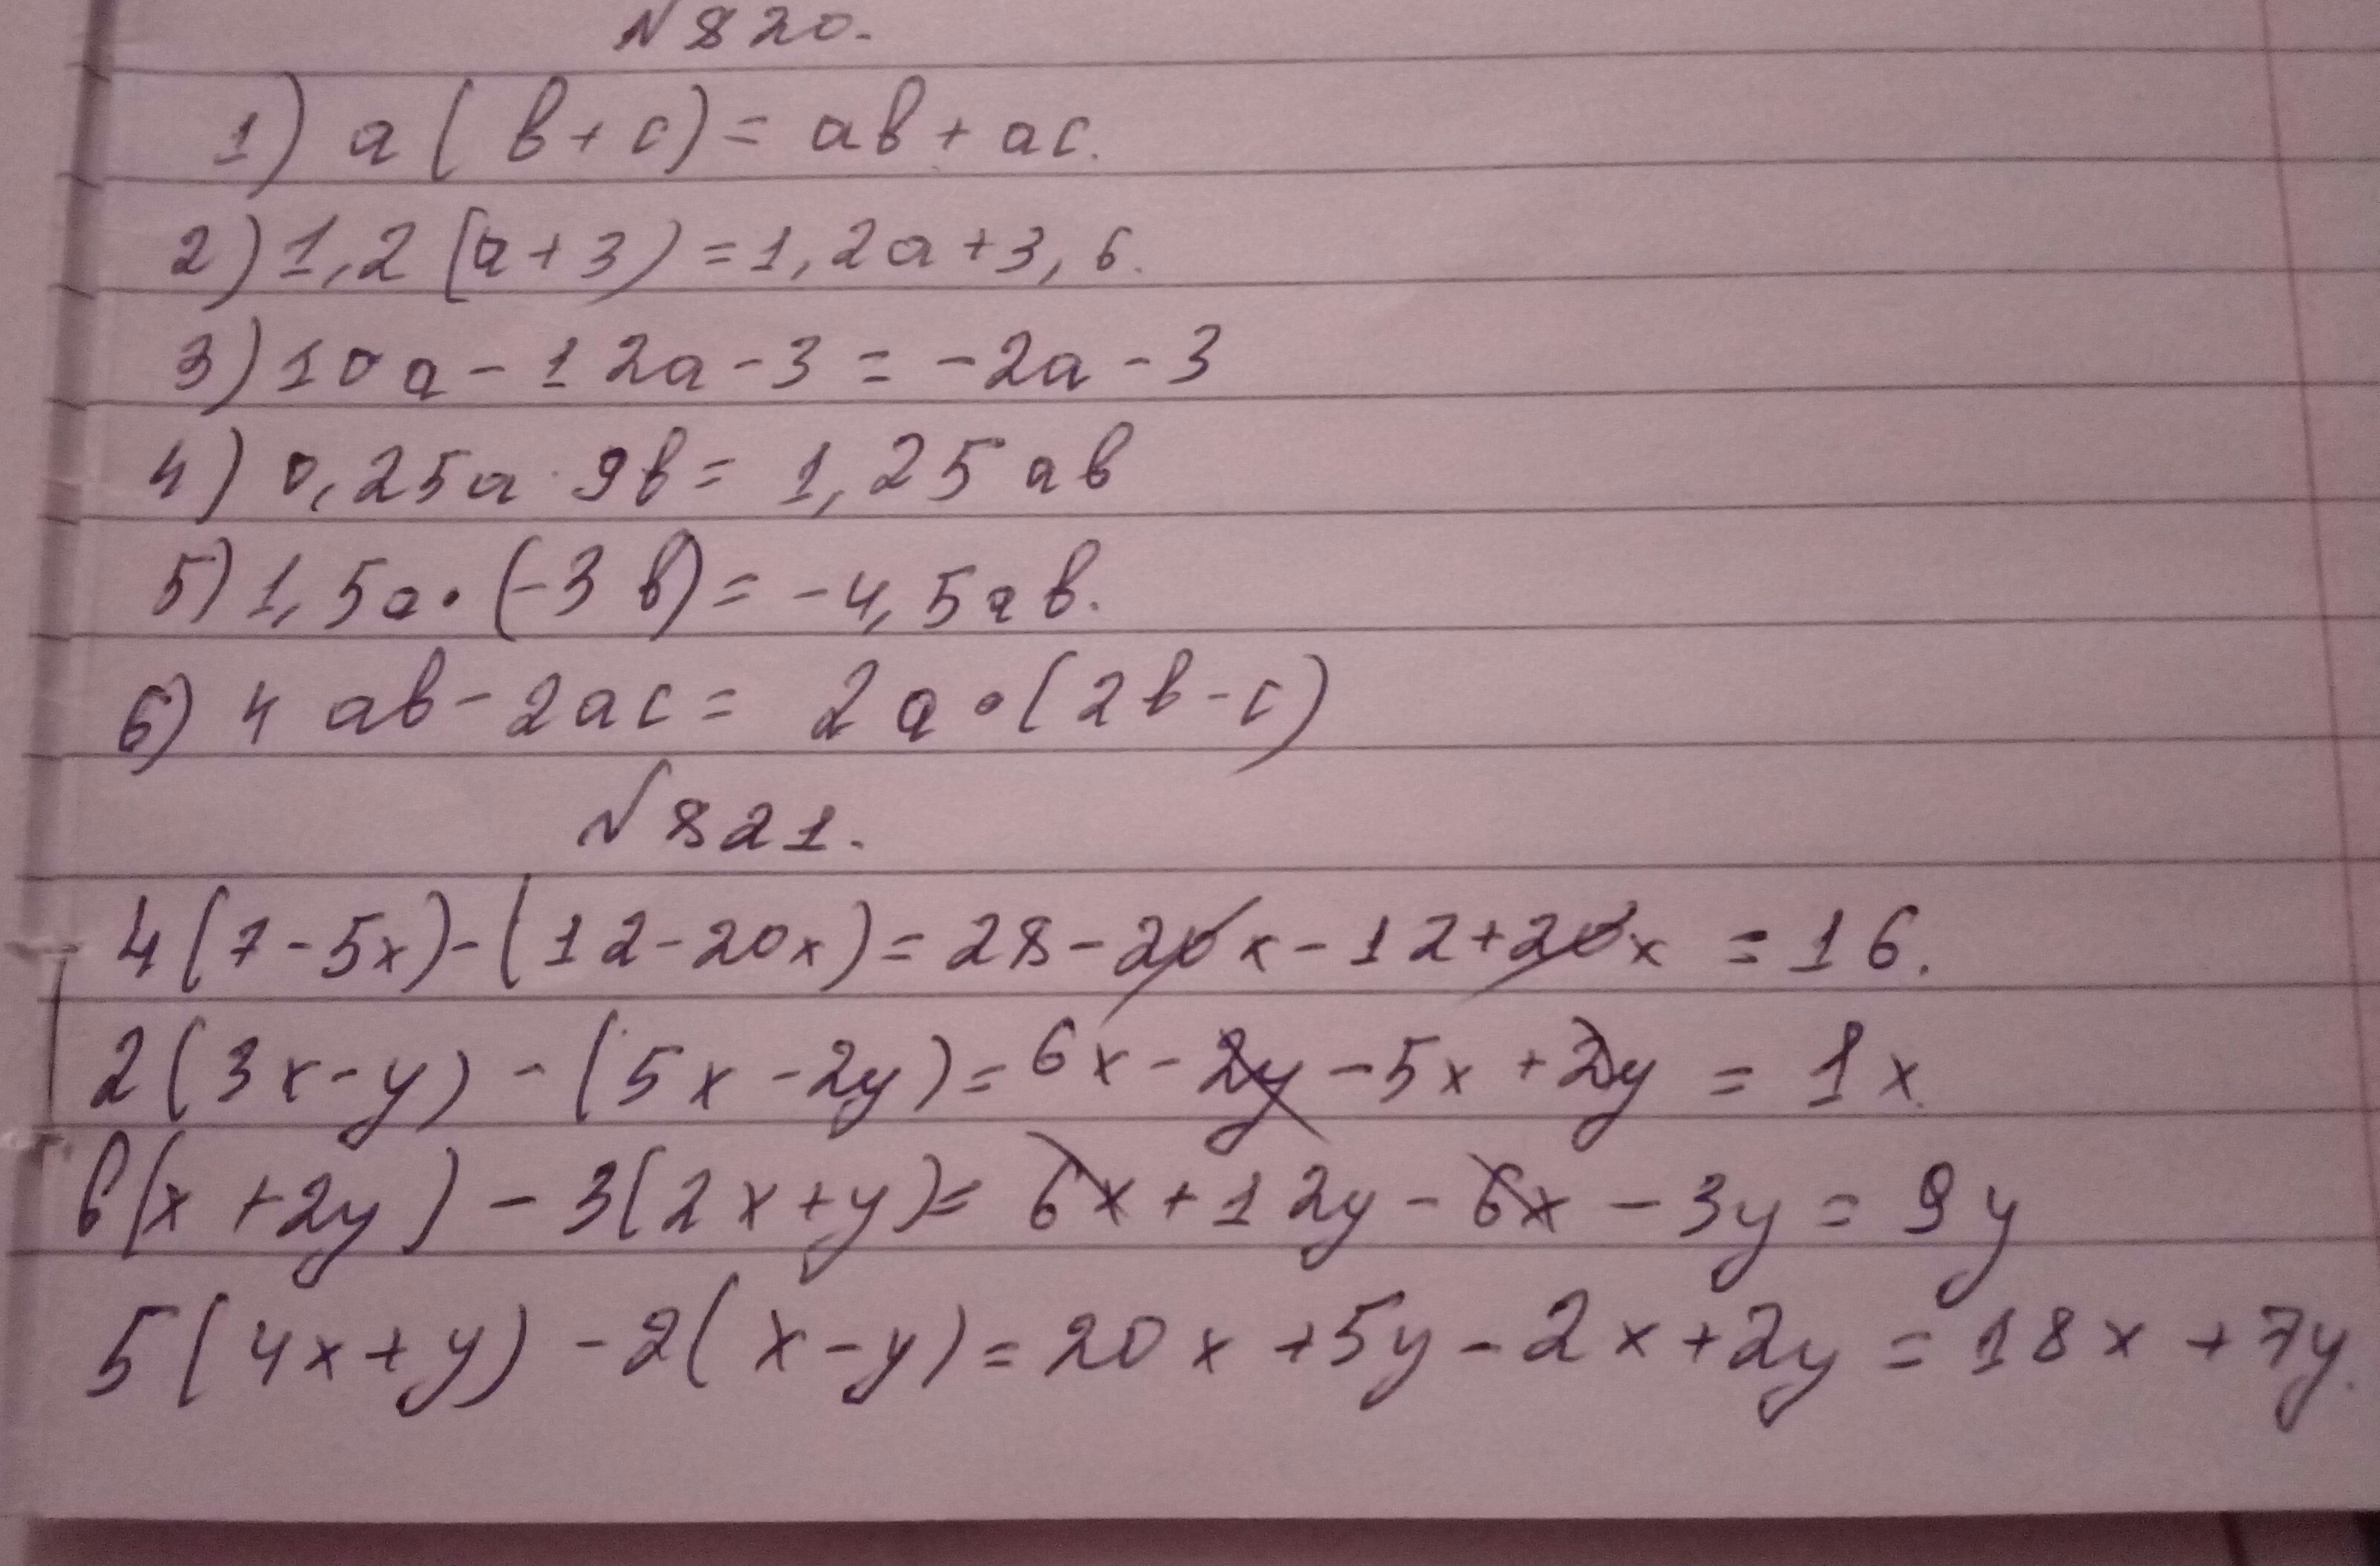 № 820.
1) a(b+c)=ab+ac.
2) 1,2(a+3)=1,2a+3,6.
3) 10a-12a-3=-2a-3
4) 0,25a·9b=1,25ab
5) 1,5a·(-3b)=-4,5ab.
6) 4ab-2ac=2a·(2b-c)
№ 821.
4(7-5x)-(12-20x)=28-20x-12+20x=16.
2(3x-y)-(5x-2y)=6x-2y-5x+2y=1x.
6(x+2y)-3(2x+y)=6x+12y-6x-3y=9y
5(4x+y)-2(x-y)=20x+5y-2x+2y=18x+7y.